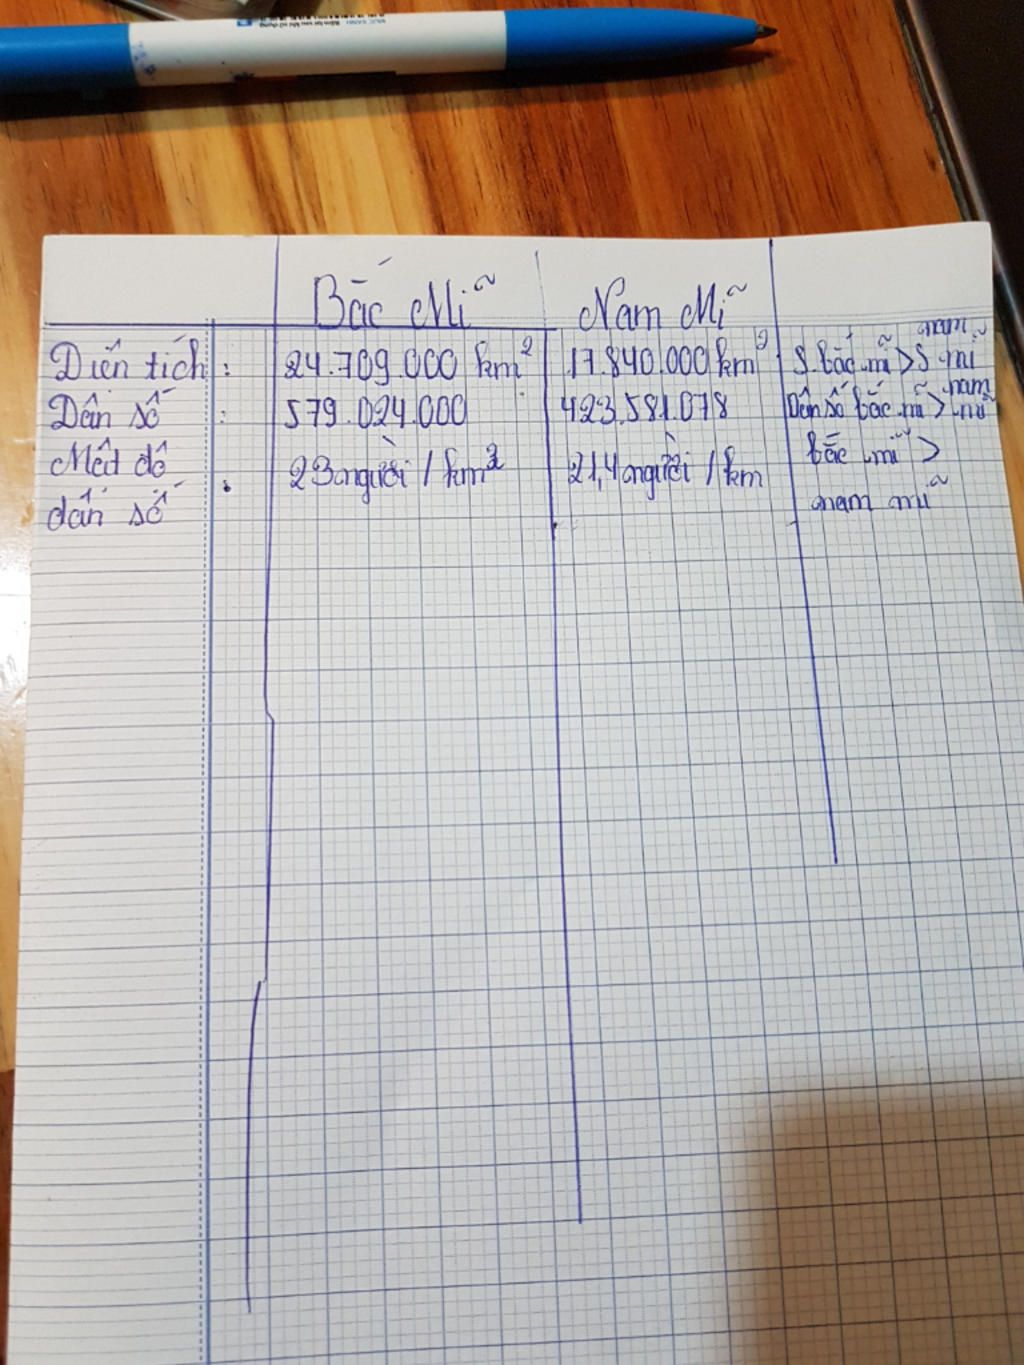 Bắc Mĩ Nam Mĩ
Diện tích : 24.709.000 km² 17.840.000 km² S. bắc mĩ > S nam mĩ
Dân số : 579.024.000 423.581.078 Dân số bắc mĩ > nam mĩ
Mật độ dân số : 23 người / km² 21,4 người / km bắc mĩ >
nam mĩ